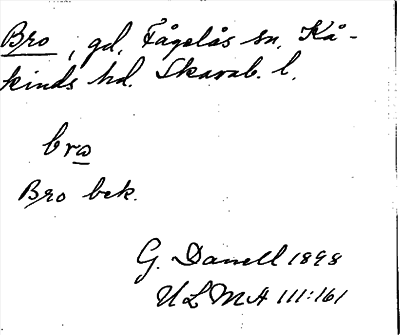 Bro, gd, Fågelås sn, Kå-
kinds hd. Skarab. l.
bro
Bro bek.
G. Danell 1898
ULMA 111:161